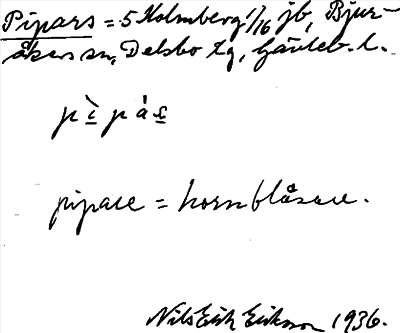 Pipars = 5 Holmberg 1/16 jb, Bjur-
åkers sn, Delsbo tg, Gävleb. l.
pìpás
pipare = hornblåsare.
Nils Erik Erikson 1936.